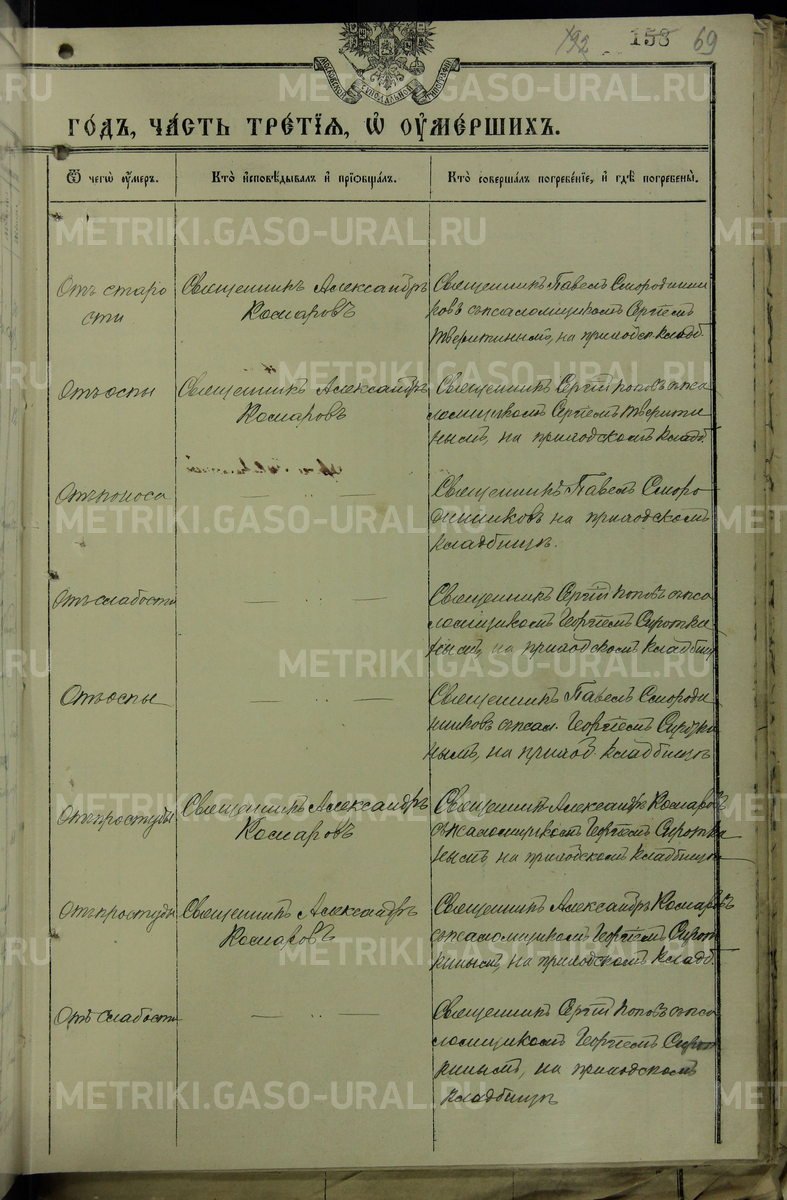 192 158 69
МОСКОВСКОЙ СѴНОДАЛЬНОЙ ТИПОГРАФІИ
ГОДЪ, ЧАСТЬ ТРЕТІЯ, Ѡ ОУМЕРШИХЪ.
Ѿ чегѡ оумеръ.
Кто исповѣдывалъ и пріобщалъ.
Кто совершалъ погребеніе, и гдѣ погребены.
Отъ старо
сти
Священникъ Александръ
Комаровъ
Священникъ Павелъ Смородинни
ковъ съ псаломщикомъ Сергѣемъ
Тверитинымъ, на приходск. кладб.
Отъ оспы
Священникъ Александръ
Комаровъ
Священникъ Сергій Поповъ съ пса
ломщикомъ Сергѣемъ Тверити
нымъ, на приходскомъ кладб.
Отъ поноса
— .. —
Священникъ Павелъ Сморо
динниковъ на приходскомъ
кладбищѣ.
Отъ слабости
— .. —
Священникъ Сергій Поповъ съ пса
ломщикомъ Георгіемъ Сиротки
нымъ, на приходскомъ кладбищѣ
Отъ оспы
— .. —
Священникъ Павелъ Смороди
нниковъ съ псал. Георгіемъ Сиротки
нымъ, на приход. кладбищѣ
Отъ простуды
Священникъ Александръ
Комаровъ
Священникъ Александръ Комаровъ
съ псаломщикомъ Георгіемъ Сиротки
нымъ, на приходскомъ кладбищѣ
Отъ простуды
Священникъ Александръ
Комаровъ
Священникъ Александръ Комаровъ
съ псаломщикомъ Георгіемъ Сирот
кинымъ, на приходскомъ кладб.
Отъ слабости
— .. —
Священникъ Сергій Поповъ съ пса
ломщикомъ Георгіемъ Сирот
кинымъ, на приходскомъ
кладбищѣ
METRIKI.GASO-URAL.RU